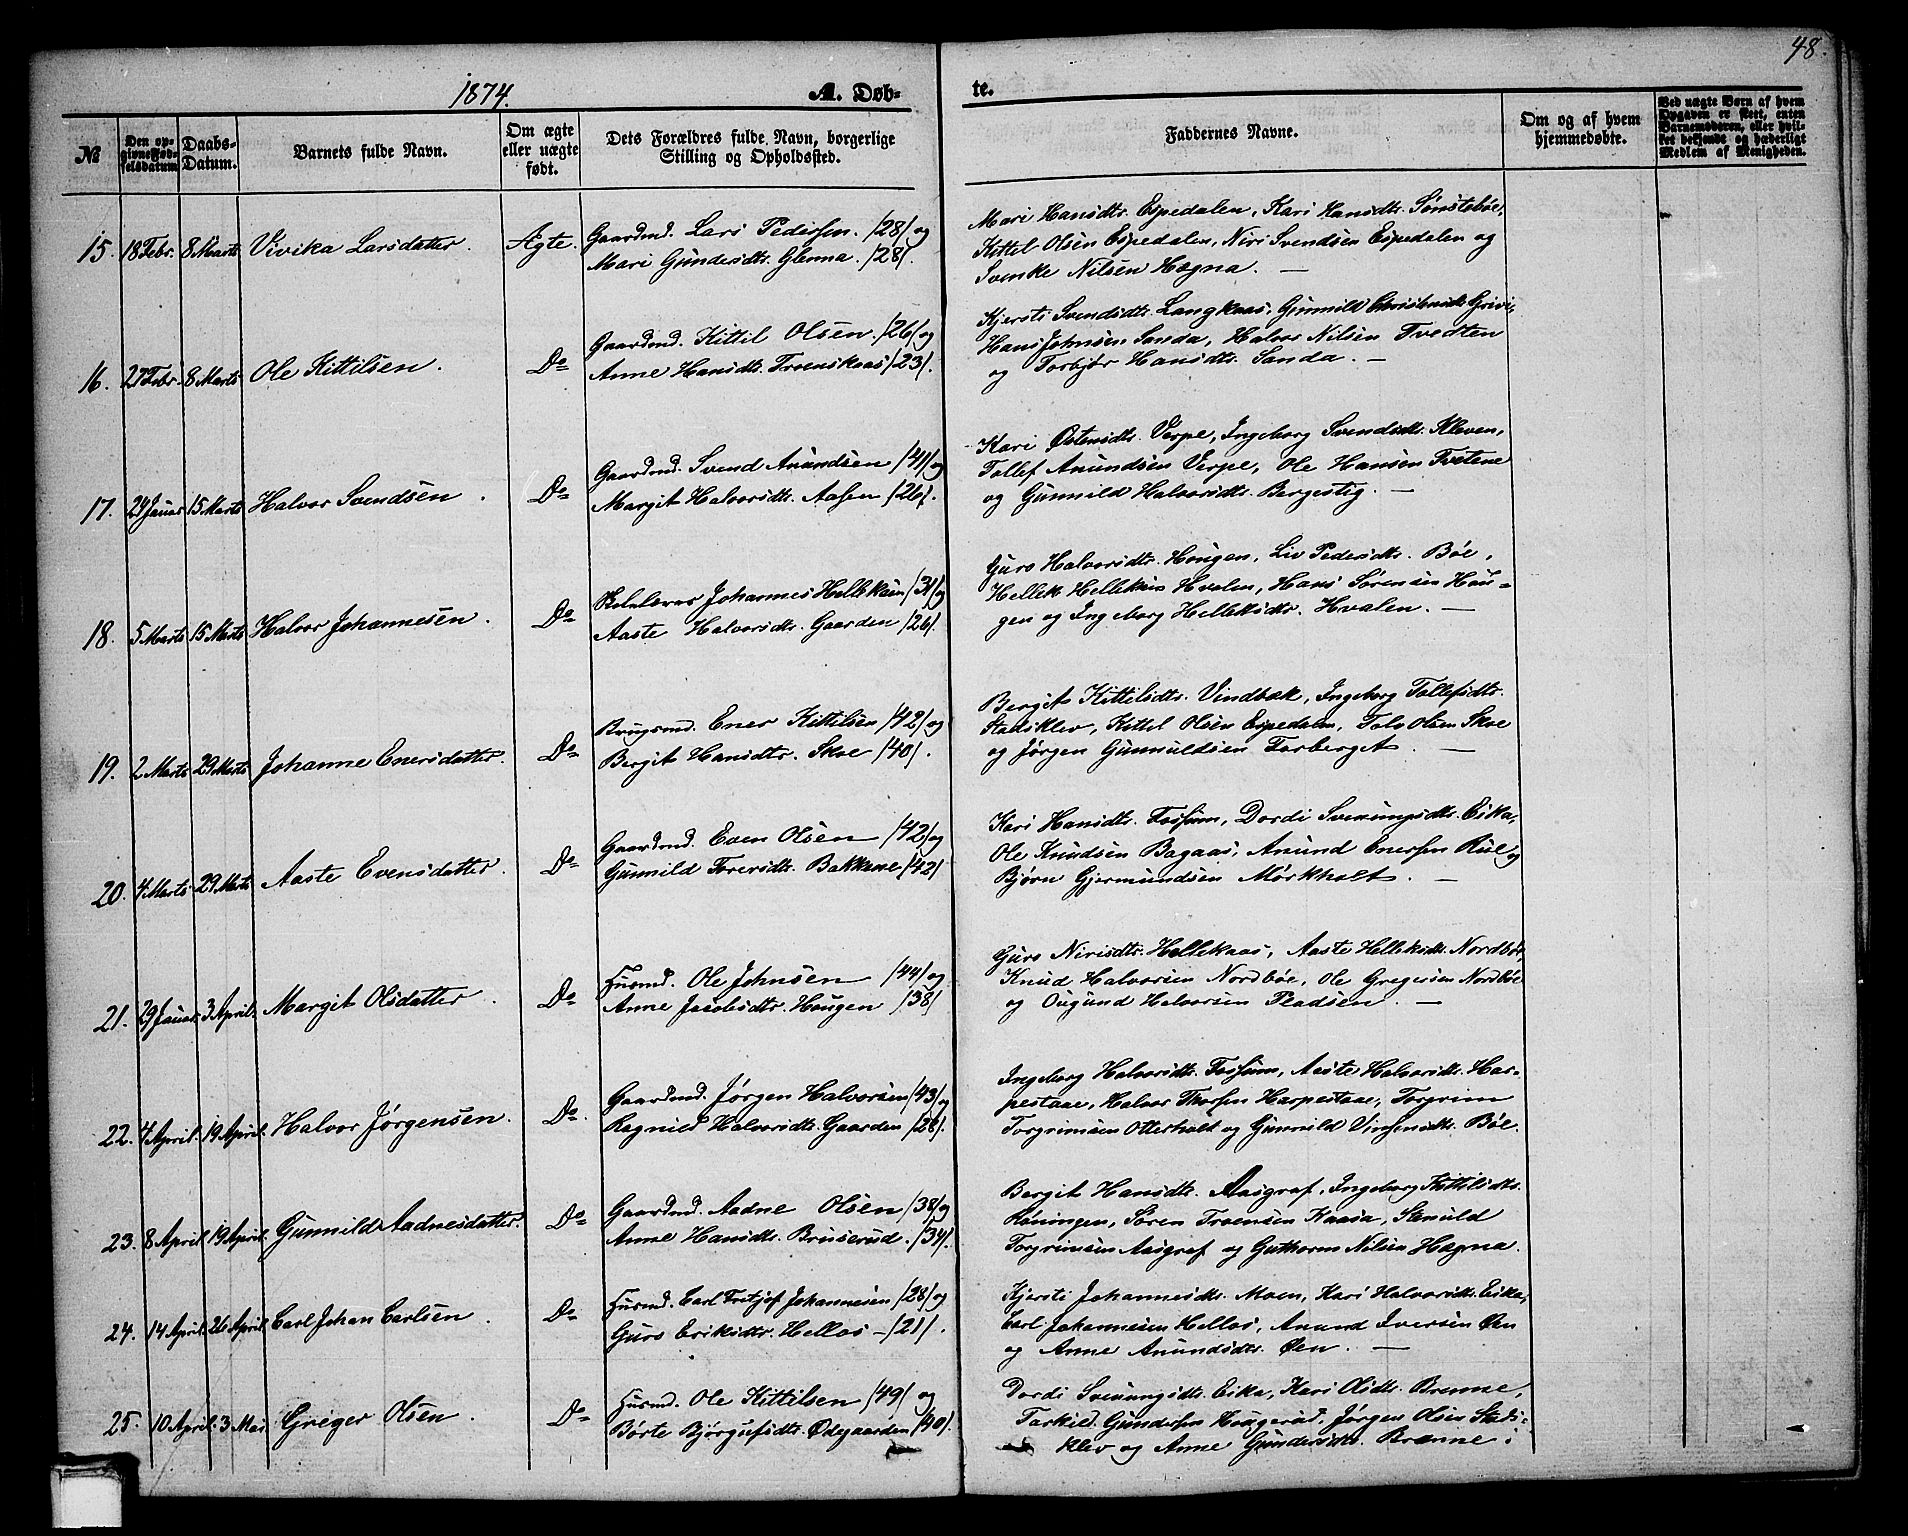 48.
1874.
A. Døb-
te.
№
Den op-
givne Fød-
selsdatum
Daabs-
Datum.
Barnets fulde Navn.
Om ægte
eller uægte
født.
Dets Forældres fulde Navn, borgerlige
Stilling og Opholdssted.
Faddernes Navne.
Om og af hvem
hjemmedøbte.
Ved uægte Børn af hvem
Opgaven er skeet, enten
Barnemoderen, eller hvil-
ket dersteds og hæderligt
Medlem af Menigheden.
15. 18 Febr. 8 Marts Vivika Larsdatter. Ægte. Gaardmd. Lars Pedersen. /28/ og
Mari Gundersdtr. Glenna. /28/.
Mari Hansdtr. Espedalen, Kari Hansdtr. Sønstebøe,
Kittel Olsen Espedalen, Niri Svendsen Espedalen og
Svenke Nilsen Hægna. —
16. 27 Febr. 8 Marts Ole Kittilsen. Do Gaardmd. Kittil Olsen. /26/ og
Anne Hansdtr. Troenskaas /23/.
Kjersti Svendsdtr. Langkaas, Gunnild Grivi,
Hans Johnsen Sanda, Halvor Nilsen Tvedten
og Torbjør Hansdtr. Sanda. —
17. 24 Januar 15 Marts Halvor Svendsen. Do Gaardmd. Svend Anundsen /41/ og
Margit Halvorsdtr. Aasen /26/.
Kari Østensdtr. Verpe, Ingeborg Svendsdtr. Kleven,
Tollef Anundsen Verpe, Ole Hansen Tvetene
og Gunnild Halvorsdtr. Bergestig. —
18. 5 Marts 15 Marts Halvor Johannesen. Do Johannes Helleksen /31/ og
Aaste Halvorsdtr. Gaarden /26/.
Guro Halvorsdtr. Hougen, Liv Pedersdtr. Bøe,
Hellek Helleksen Hvalen, Hans Sørensen Hou-
gen og Ingeborg Helleksdtr. Hvalen. —
19. 2 Marts 29 Marts Johanne Enersdatter. Do Brugsmd. Ener Kittilsen /42/ og
Bergit Hansdtr. Skoe /40/.
Bergit Kittilsdtr. Vindbæk, Ingeborg Tollefsdtr.
Stadsklev, Kittel Olsen Espedalen, Tolv Olsen Skoe
og Jørgen Gunnuldsen Farberget. —
20. 4 Marts 29 Marts Aaste Evensdatter. Do Gaardmd. Even Olsen /42/ og
Gunnild Toresdtr. Bakkane /42/
Kari Hansdtr. Fossum, Dordi Sveinungsdtr. Eika,
Ole Knudsen Bagaas, Anund Enersen Rue og
Bjørn Gjermundsen Mørkholt. —
21. 29 Januar 3 April Margit Olsdatter. Do Husmd. Ole Johnsen /44/ og
Anne Jacobsdtr. Hougen /38/
Guro Nirisdtr. Hellekaas, Aaste Helleksdtr. Nordbøe,
Knud Halvorsen Nordbøe, Ole Gregersen Nordbøe
og Ougund Halvorsen Pladsen. —
22. 4 April. 19 April. Halvor Jørgensen. Do. Gaardmd. Jørgen Halvorsen /43/ og
Ragnild Halvorsdtr. Gaarden /28/.
Ingeborg Halvorsdtr. Fossum, Aaste Halvorsdtr. Har-
pestaae, Halvor Thorsen Harpestaae, Torgrim
Torgrimsen Otterholt og Gunnild Bøe.
23. 8 April. 19 April. Gunnild Aadnesdatter. Do. Gaardmd. Aadne Olsen /38/ og
Anne Hansdtr. Bruserud. /34/.
Bergit Hansdtr. Aasgraf, Ingeborg Kittilsdtr.
Røningen, Søren Troensen Kaasa, Stenuld
Torgrimsen Aasgraf og Guthorm Nilsen Hægna.
24. 14 April. 26 April. Carl Johan Carlsen. Do Husmd. Carl Fritjof Johannesen /28/ og
Guro Eriksdtr. Hellos – /21/.
Kjersti Johannesdtr. Moen, Kari Halvorsdtr. Eika,
Carl Johannesen Hellos, Anund Iversen Øen
og Anne Anundsdtr. Øen. —
25. 10 April. 3 Mai. Greger Olsen. Do Husmd. Ole Kittilsen /49/ og
Børte Bjørgufsdtr. Ødegaarden /40/.
Dordi Sveinungsdtr. Eika, Kari Olsdtr. Brenne,
Tarkild Gundersen Hougerud, Jørgen Olsen Stads-
klev og Anne Gundersdtr. Brenne.